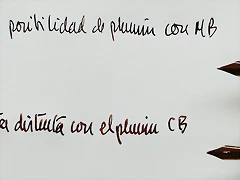 posibilidad de plumín con MB
distinta con el plumín CB